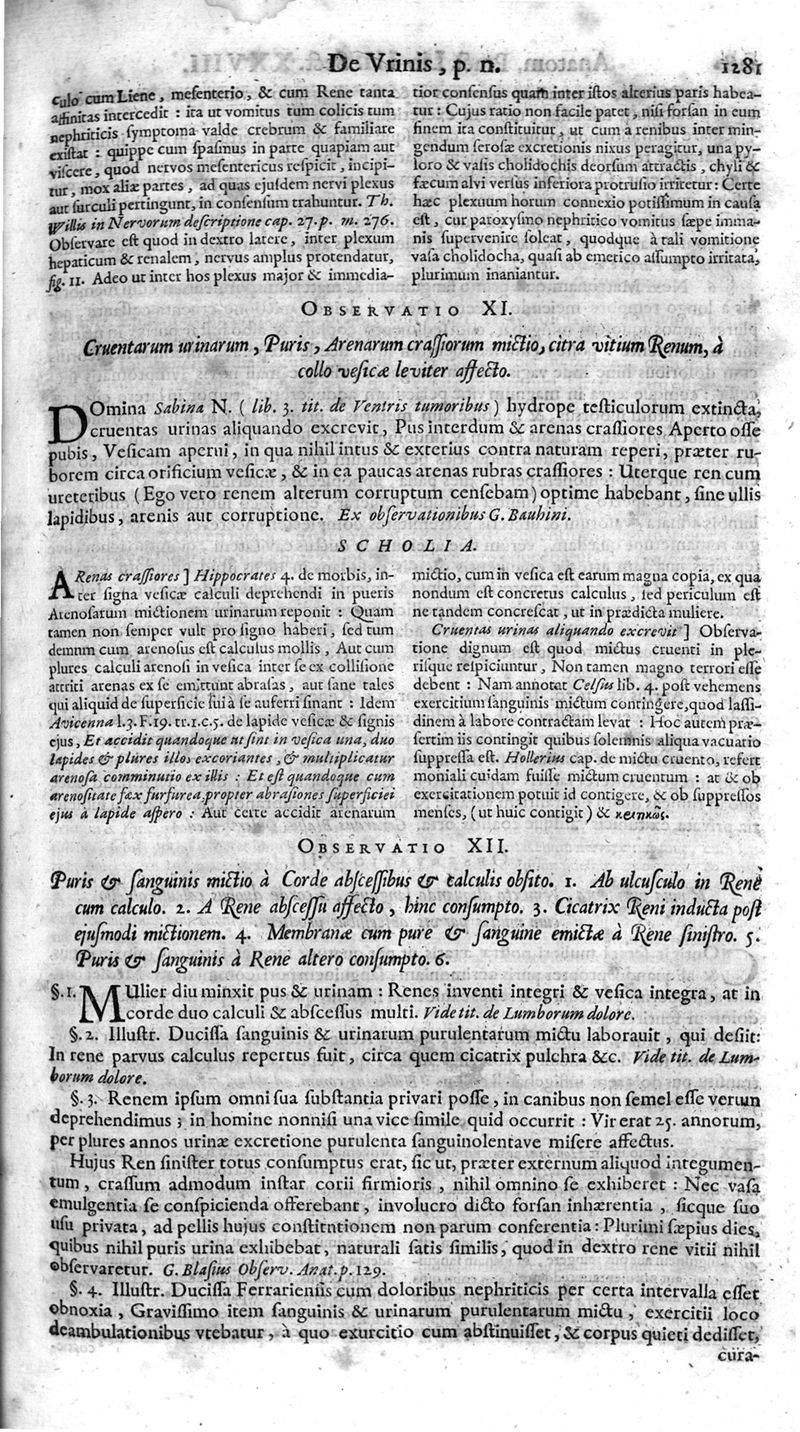 De Vrinis, p. n.
1281
culo cum Liene, mesenterio, & cum Rene tanta
affinitas intercedit : ita ut vomitus tum colicis tum
nephriticis symptoma valde crebrum & familiare
existat : quippe cum spasmus in parte quapiam aut
viscere, quod nervos mesentericus respicit, incipi-
tur, mox aliæ partes, ad quas ejusdem nervi plexus
aut surculi pertingunt, in consensum trahuntur. Th.
Willis in Nervorum descriptione cap. 27. p. m. 276.
Observare est quod in dextro latere, inter plexum
hepaticum & renalem, nervus amplus protendatur,
fig. 11. Adeo ut inter hos plexus major & immedia-
tior consensus quam inter istos alterius paris habea-
tur : Cujus ratio non facile patet, nisi forsan in eum
finem ita constituitur, ut cum a renibus inter min-
gendum serosæ excretionis nixus peragitur, una py-
loro & vasis cholidochis deorsum attractis, chyli &
fæcum alvi versus inferiora protrusio irritetur : Certe
hæc plexuum horum connexio potissimum in causa
est, cur paroxysmo nephritico vomitus sæpe imma-
nis supervenire soleat, quodque à tali vomitione
vasa cholidocha, quasi ab emetico assumpto irritata,
plurimum inaniantur.
OBSERVATIO XI.
Cruentarum urinarum, Puris, Arenarum crassiorum mictio, citra vitium Renum, à
collo vesicæ leviter affecto.
DOmina Sabina N. ( lib. 3. tit. de Ventris tumoribus ) hydrope testiculorum extincta,
cruentas urinas aliquando excrevit, Pus interdum & arenas crassiores Aperto osse
pubis, Vesicam aperui, in qua nihil intus & exterius contra naturam reperi, præter ru-
borem circa orificium vesicæ, & in ea paucas arenas rubras crassiores : Uterque ren cum
ureteribus ( Ego vero renem alterum corruptum censebam) optime habebant, sine ullis
lapidibus, arenis aut corruptione. Ex observationibus G. Bauhini.
SCHOLIA.
ARenas crassiores ] Hippocrates 4. de morbis, in-
ter signa vesicæ calculi deprehendi in pueris
Arenosarum mictionem urinarum reponit : Quam
tamen non semper vult pro signo haberi, sed tum
demum cum arenosus est calculus mollis, Aut cum
plures calculi arenosi in vesica inter se ex collisione
attriti arenas ex se emittunt abrasas, aut sane tales
qui aliquid de superficie sui à se auferri sinant : Idem
Avicenna l.3.F.19. tr.1.c.5. de lapide vesicæ & signis
ejus, Et accidit quandoque ut sint in vesica una, duo
lapides & plures illos excoriantes, & multiplicatur
arenosa comminutio ex illis : Et est quandoque cum
arenositate fæx furfurea, propter abrasiones superficiei
ejus à lapide aspero : Aut certe accidit arenarum
mictio, cum in vesica est earum magna copia, ex qua
nondum est concretus calculus, sed periculum est
ne tandem concrescat, ut in prædicta muliere.
Cruentas urinas aliquando excrevit ] Observa-
tione dignum est quod mictus cruenti in ple-
risque respiciuntur, Non tamen magno terrori esse
debent : Nam annotat Celsus lib. 4. post vehemens
exercitium sanguinis mictum contingere, quod lassi-
dinem à labore contractam levat : Hoc autem præ-
sertim iis contingit quibus solemnis aliqua vacuatio
suppressa est. Hollerius cap. de mictu cruento, refert
moniali cuidam fuisse mictum cruentum : at & ob
exercitationem potuit id contigere, & ob suppressos
menses, ( ut huic contigit ) &
OBSERVATIO XII.
Puris & sanguinis mictio à Corde abscessibus & calculis obsito. 1. Ab ulcusculo in Rene
cum calculo. 2. A Rene abscessu affecto, hinc consumpto. 3. Cicatrix Reni inducta post
ejusmodi mictionem. 4. Membranæ cum pure & sanguine emictæ à Rene sinistro. 5.
Puris & sanguinis à Rene altero consumpto. 6.
§. 1. MUlier diu minxit pus & urinam : Renes inventi integri & vesica integra, at in
corde duo calculi & abscessus multi. Vide tit. de Lumborum dolore.
§. 2. Illustr. Ducissa sanguinis & urinarum purulentarum mictu laborauit, qui desiit:
In rene parvus calculus repertus fuit, circa quem cicatrix pulchra &c. Vide tit. de Lum-
borum dolore.
§. 3. Renem ipsum omni sua substantia privari posse, in canibus non semel esse verum
deprehendimus ; in homine nonnisi una vice simile quid occurrit : Vir erat 25. annorum,
per plures annos urinæ excretione purulenta sanguinolentave misere affectus.
Hujus Ren sinister totus consumptus erat, sic ut, præter externum aliquod integumen-
tum, crassum admodum instar corii firmioris, nihil omnino se exhiberet : Nec vasa
emulgentia se conspicienda offerebant, involucro dicto forsan inhærentia, sicque suo
usu privata, ad pellis hujus constitntionem non parum conferentia : Plurimi sæpius dies,
quibus nihil puris urina exhibebat, naturali satis similis, quod in dextro rene vitii nihil
observaretur. G. Blasius Observ. Anat. p. 129.
§. 4. Illustr. Ducissa Ferrariensis cum doloribus nephriticis per certa intervalla esset
obnoxia, Gravissimo item sanguinis & urinarum purulentarum mictu, exercitii loco
deambulationibus vtebatur, à quo exurcitio cum abstinuisset, & corpus quieti dedisset,
cura-